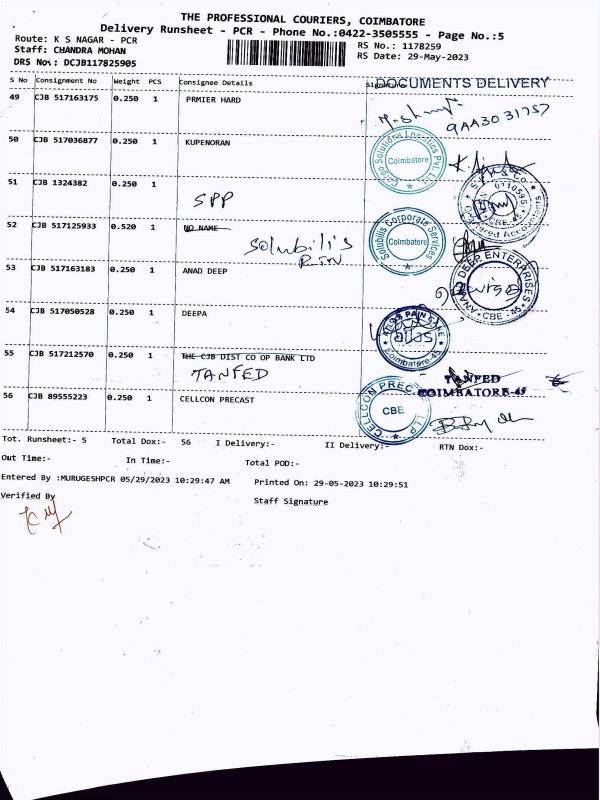 THE PROFESSIONAL COURIERS, COIMBATORE
Delivery Runsheet - PCR - Phone No.:0422-3505555 - Page No.:5
Route: K S NAGAR - PCR
Staff: CHANDRA MOHAN
DRS No.: DCJB117825905
RS No.: 1178259
RS Date: 29-May-2023
S No Consignment No Weight PCS Consignee Details
DOCUMENTS DELIVERY
49 CJB 517163175 0.250 1 PRMIER HARD
9AA3031757
50 CJB 517036877 0.250 1 KUPENORAN
Coimbatore
51 CJB 1324382 0.250 1
SPP
52 CJB 517125933 0.520 1 NO NAME
Solubilis
RTN
Solubilis Corporate Services
Coimbatore
53 CJB 517163183 0.250 1 ANAD DEEP
ANAND DEEP ENTERPRISES
CBE - 45
54 CJB 517050528 0.250 1 DEEPA
atlas
Coimbatore-45
55 CJB 517212570 0.250 1 THE CJB DIST CO OP BANK LTD
TANFED
TANFED
COIMBATORE-45
56 CJB 89555223 0.250 1 CELLCON PRECAST
CELLCON PRECAST LLP
CBE
Tot. Runsheet:- 5 Total Dox:- 56 I Delivery:- II Delivery:- RTN Dox:-
Out Time:- In Time:- Total POD:-
Entered By :MURUGESHPCR 05/29/2023 10:29:47 AM Printed On: 29-05-2023 10:29:51
Verified By
Staff Signature